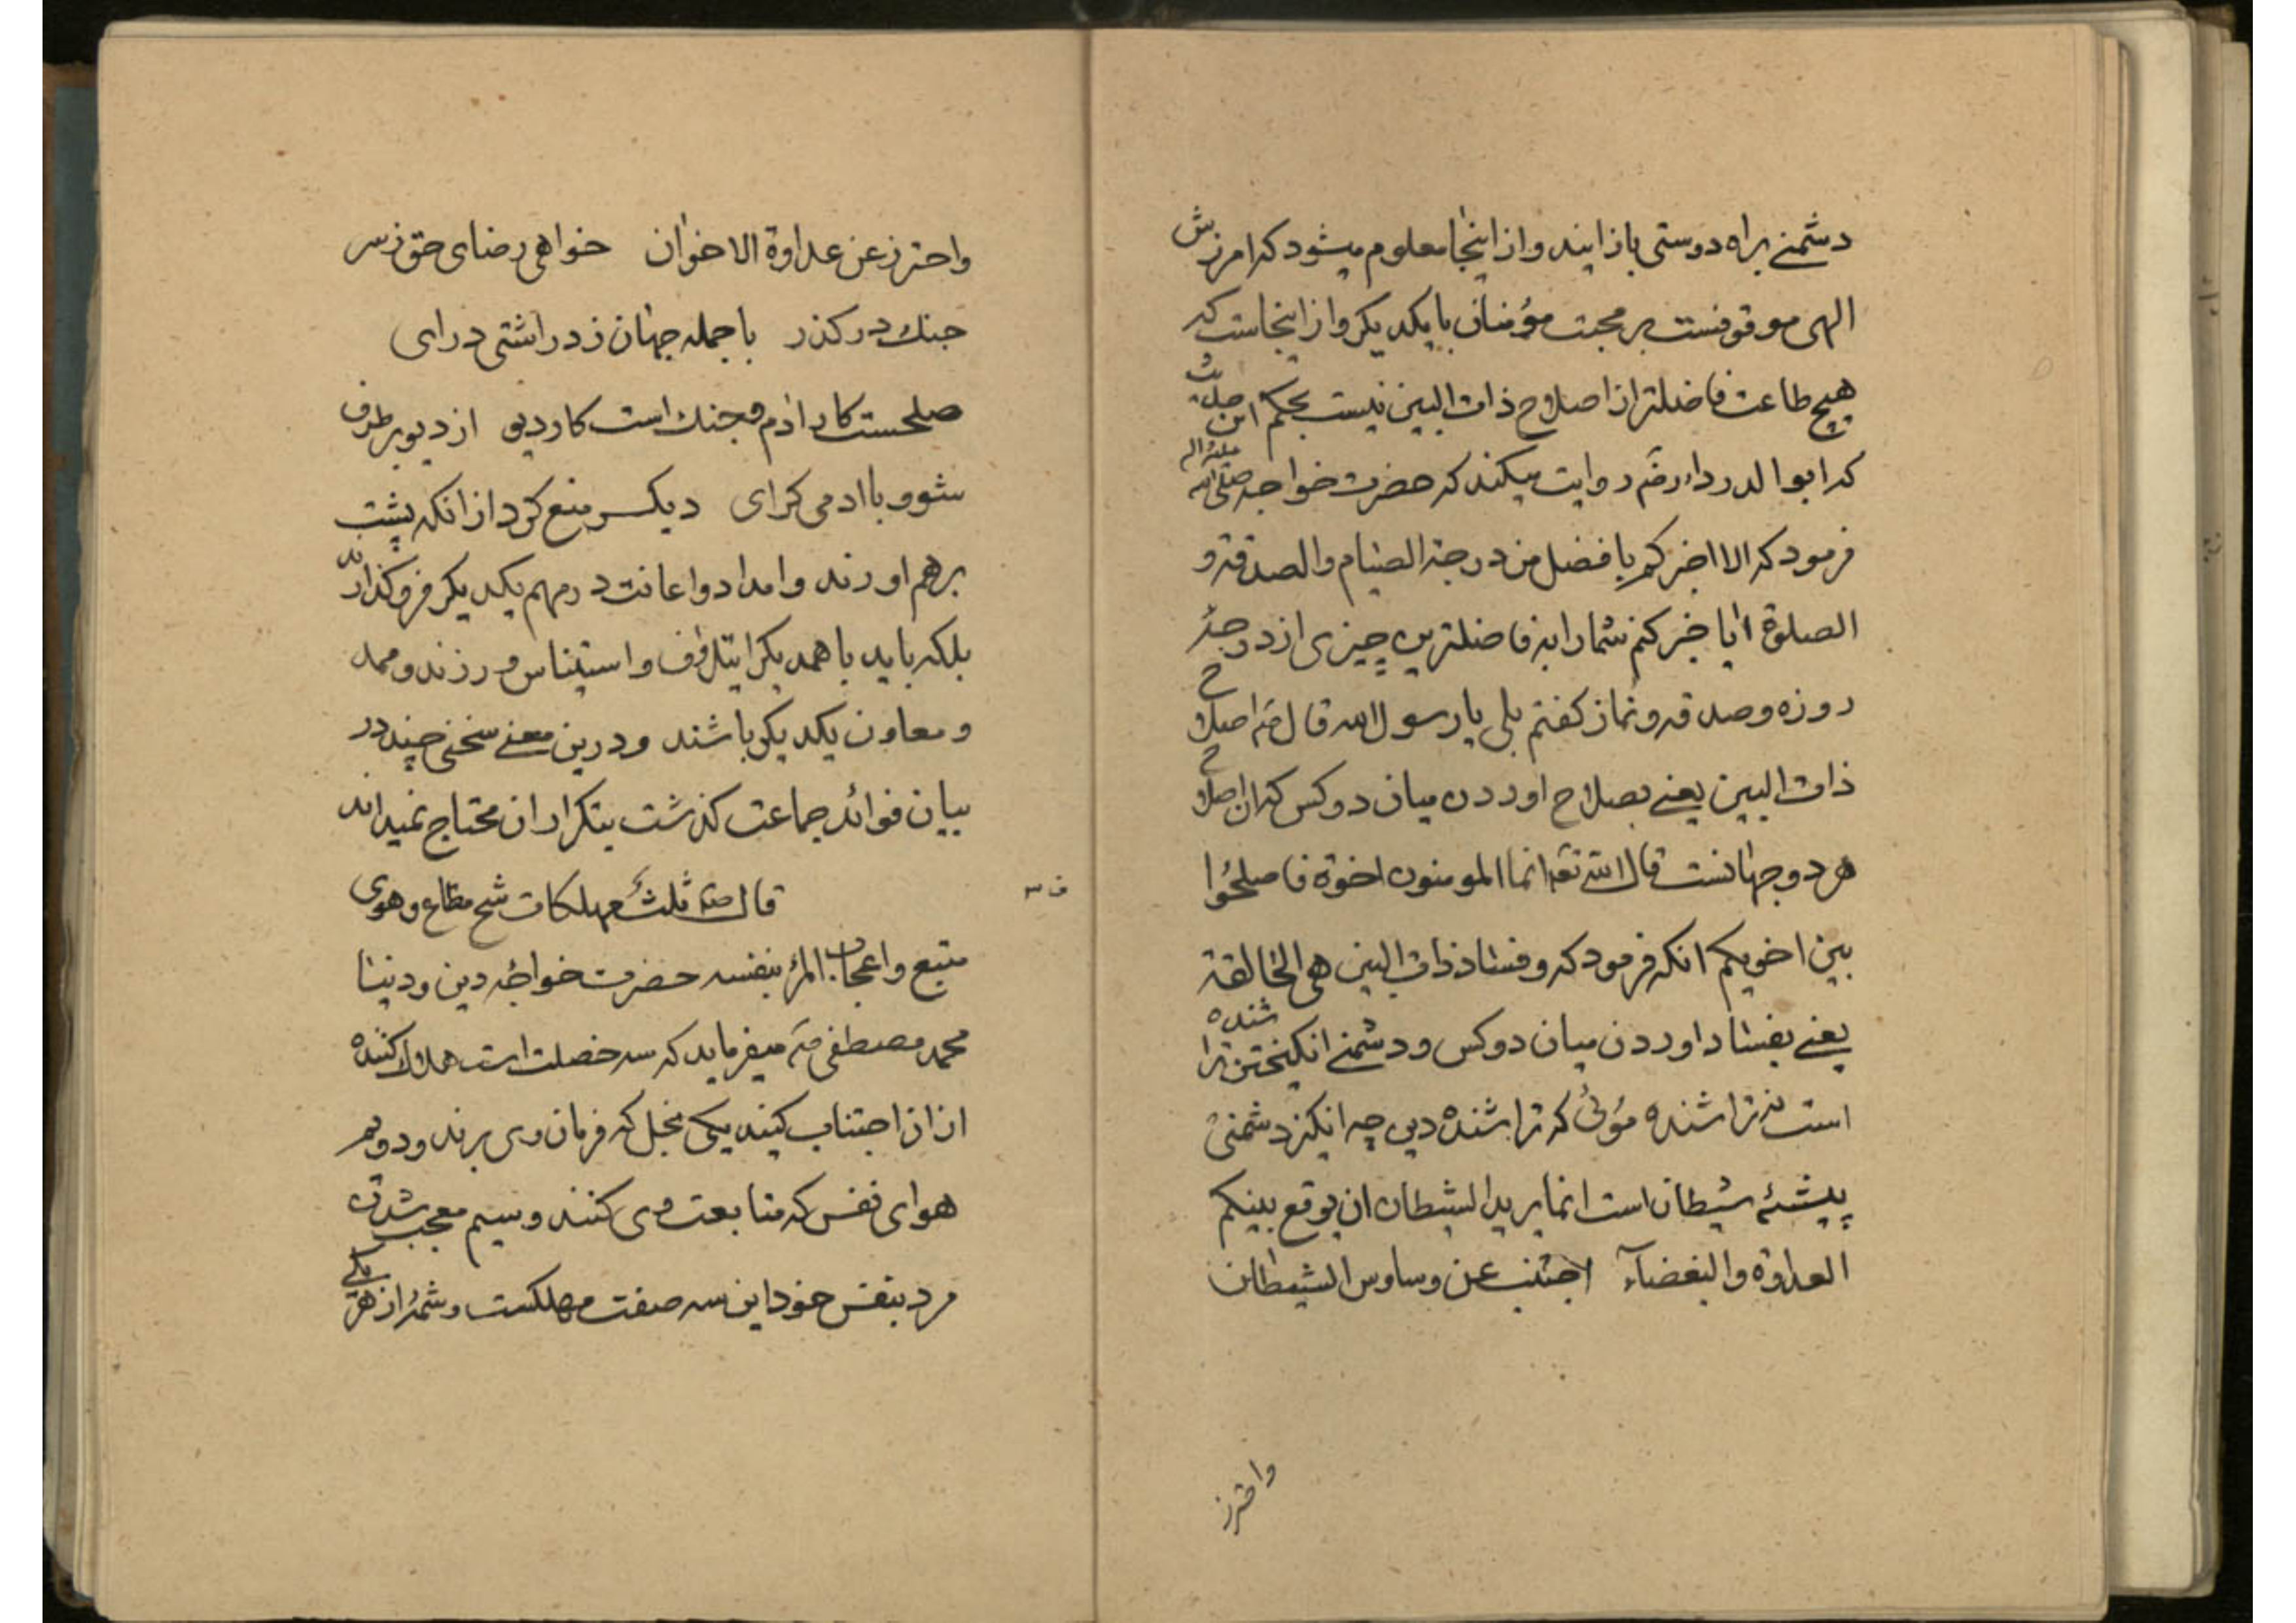 دشمنے براه دوستی باز ایند واز اینجا معلوم میشود که امرزش
الهی موقوفست بر محبت مؤمنان با یکدیکر واز اینجاست که
هیچ طاعت فاضلتر از اصلاح ذات البین نیست بحکم این حدیث
که ابو الدرداء رضہ روایت میکند که حضرت خواجه صلی الله علیه
فرمود که الا اخبرکم بافضل من درجة الصیام والصدقة و
الصلوة ایا خبر کنم شمارا به فاضلترین چیزی از درجهٔ
روزه وصدقه ونماز کفتم بلی یا رسول الله قال صہ اصلاح
ذات البین یعنے بصلاح اوردن میان دو کس که ان اصلاح
هر دو جهانست قال الله تعہ انما المومنون اخوة فاصلحُوا
بین اخویکم انکه فرمود که و فساد ذات البین هی الخالقة
یعنے بفساد اوردن میان دو کس و دشمنے انکیختن تراشنده
است نه تراشنده مؤیٔ که تراشنده دین چه انکیز دشمنیٔ
پیشهٔ شیطان است انما یرید الشیطان ان یوقع بینکم
العداوة والبغضآء اجتنب عن وساوس الشیطان
واحترز
واحترز عن عداوة الاخوان خواهی رضای حق ز سر
جنك در کذر با جمله جهان ز در اشتی درای
صلحست کار ادم و جنك است کار دیو از دیو بر طرف
شو و با ادمی کرای دیکر منع کرد از انکه پشت
بر هم اورند وامداد واعانت در مهم یکدیکر فرو کذارند
بلکه باید با همدیکر ایتلاف واستیناس ورزند وممد
ومعاون یکدیکر باشند ودرین معنے سخنی چند در
بیان فوائد جماعت کذشت بتکرار ان محتاج نمیداند
ف س
قال صہ ثلث مهلکات شح مطاع وهوی
متبع واعجاب المرٔ بنفسه حضرت خواجهٔ دین ودنیا
محمد مصطفی صہ میفرماید که سه خصلت است هلاك کننده
از ان اجتناب کنید یکی بخل که فرمان وی برند ودویم
هوای نفس که متابعت وی کنند وسیم معجب شدن
مرد بنفس خود این سه صفت مهلکست وشمهٔ از هر یکے